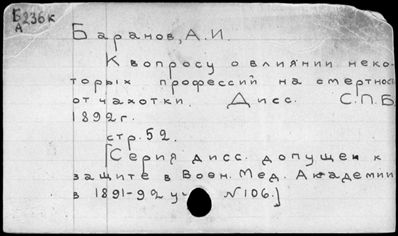 Б236к
А
Баранов, А.И.
К вопросу о влиянии неко-
торых профессий на смертност
от чахотки. Дисс. С.П.Б.
1892г.
стр. 52.
[Серия дисс. допущен к
защите в Воен. Мед. Академии
в 1891-92 уч N106.]